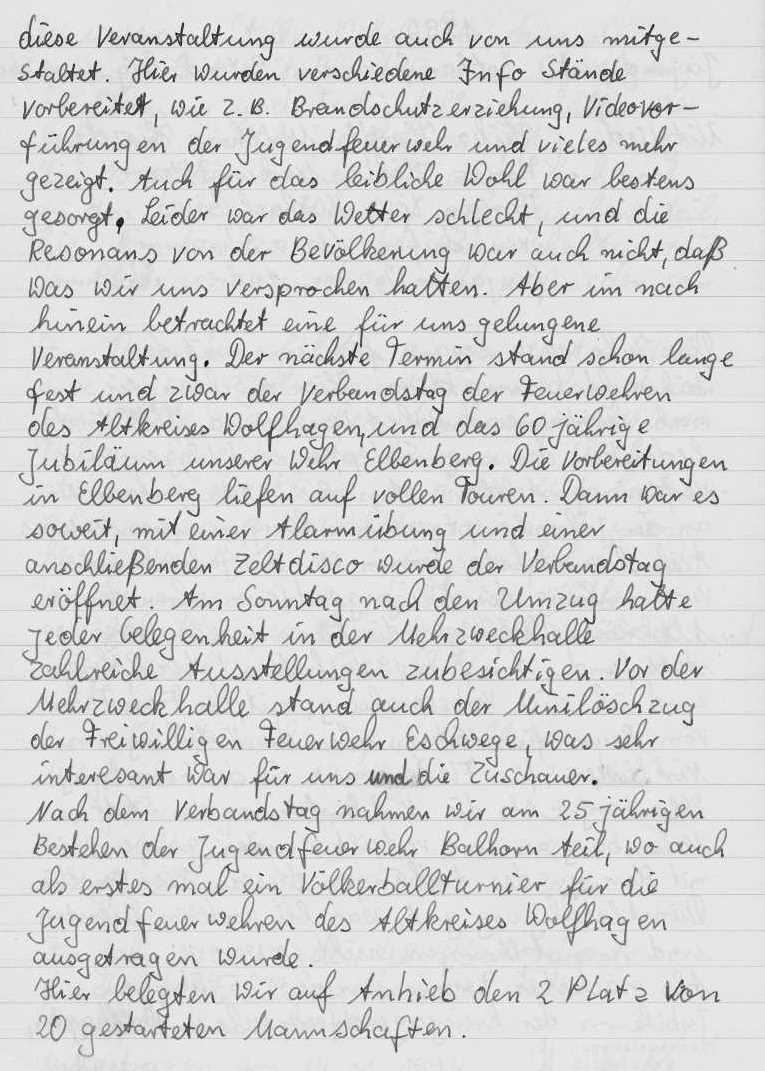 diese Veranstaltung wurde auch von uns mitge-
staltet. Hier wurden verschiedene Info Stände
vorbereitet, wie z.B. Brandschutzerziehung, Videovor-
führungen der Jugendfeuerwehr und vieles mehr
gezeigt. Auch für das leibliche Wohl war bestens
gesorgt. Leider war das Wetter schlecht, und die
Resonans von der Bevölkerung war auch nicht, daß
was wir uns versprochen hatten. Aber im nach
hinein betrachtet eine für uns gelungene
Veranstaltung. Der nächste Termin stand schon lange
fest und zwar der Verbandstag der Feuerwehren
des Altkreises Wolfhagen, und das 60 jährige
Jubiläum unserer Wehr Elbenberg. Die Vorbereitungen
in Elbenberg liefen auf vollen Touren. Dann war es
soweit, mit einer Alarmübung und einer
anschließenden Zeltdisco wurde der Verbandstag
eröffnet. Am Sonntag nach den Umzug hatte
jeder Gelegenheit in der Mehrzweckhalle
zahlreiche Ausstellungen zubesichtigen. Vor der
Mehrzweckhalle stand auch der Minilöschzug
der Freiwilligen Feuerwehr Eschwege, was sehr
interesant war für uns und die Zuschauer.
Nach dem Verbandstag nahmen wir am 25 jährigen
Bestehen der Jugendfeuerwehr Balhorn teil, wo auch
als erstes mal ein Völkerballturnier für die
Jugendfeuerwehren des Altkreises Wolfhagen
ausgetragen wurde.
Hier belegten wir auf Anhieb den 2 Platz von
20 gestarteten Mannschaften.